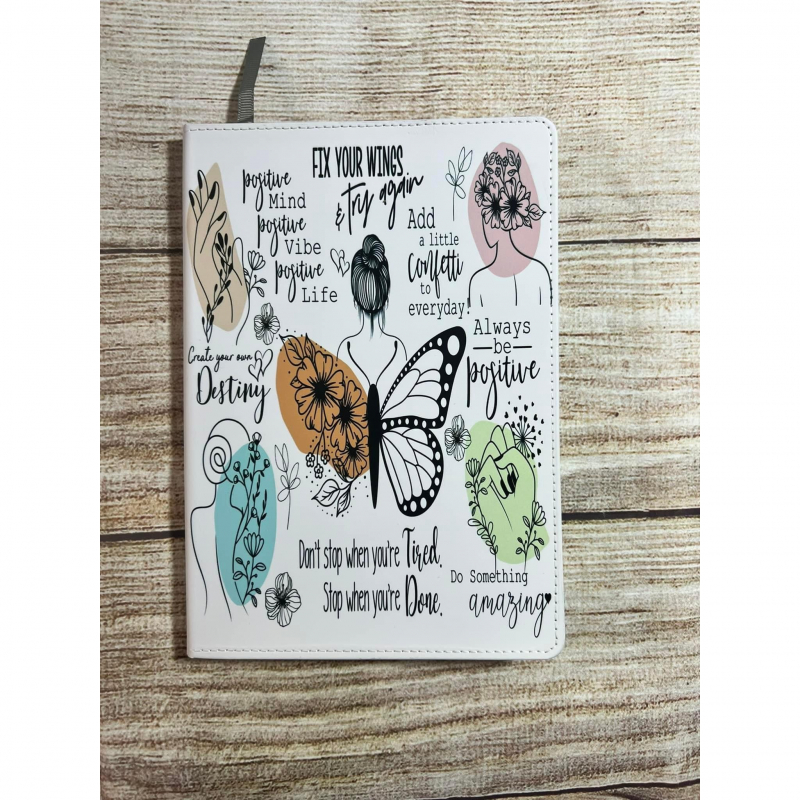 FIX YOUR WINGS
& try again
positive
Mind
positive
Vibe
positive
Life
Add
a little
confetti
to
everyday!
Always
be
positive
Create your own
Destiny
Don't stop when you're Tired.
Stop when you're Done.
Do Something
amazing